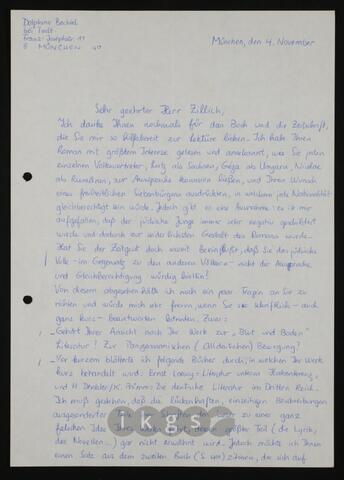 Delphine Bechtel
bei Todt
Franz-Josephstr. 11
8 MÜNCHEN 40
München, den 4. November
Sehr geehrter Herr Zillich,
Ich danke Ihnen nochmals für das Buch und die Zeitschrift,
die Sie mir so hilfsbereit zur Lektüre liehen. Ich habe Ihren
Roman mit größtem Interesse gelesen und anerkannt, wie Sie jeden
einzelnen Volksvertreter, Lutz als Sachsen, Géza als Ungarn, Nicolae
als Rumänen, zur Aussprache kommen ließen, und Ihren Wunsch
eines freiheitlichen Siebenbürgens ausdrückten, in welchem jede Nationalität
gleichberechtigt sein würde. Jedoch gibt es eine Ausnahme: es ist mir
aufgefallen, daß der jüdische Junge immer sehr negativ geschildert
wurde und dadurch zur widerlichsten Gestalt des Romans wurde.
Hat Sie der Zeitgeist doch soweit beeinflußt, daß Sie das jüdische
Volk - im Gegensatz zu den anderen Völkern - nicht der Aussprache
und Gleichberechtigung würdig hielten?
Von diesem abgesehen hätte ich noch ein paar Fragen an Sie zu
richten und würde mich sehr freuen, wenn Sie sie schriftlich - auch
ganz kurz - beantworten könnten. Zwar:
- Gehört Ihrer Ansicht nach Ihr Werk zur "Blut und Boden"
Literatur? Zur Pangermanischen (Alldeutschen) Bewegung?
- Vor kurzem blätterte ich folgende Bücher durch, in welchen Ihr Werk
kurz behandelt wird: Ernst Loewy: Literatur unterm Hakenkreuz,
und H. Denkler/K. Prümm: Die deutsche Literatur im Dritten Reich.
Ich muß gestehen, daß die lückenhaften, einseitigen Beschreibungen
ausgesonderter zu einer ganz
falschen Idee Ihres Werkes führt, dessen größter Teil (die Lyrik,
die Novellen...) gar nicht erwähnt wird. Jedoch möchte ich Ihnen
einen Satz aus dem zweiten Buch zitieren, der sich auf
ikgs